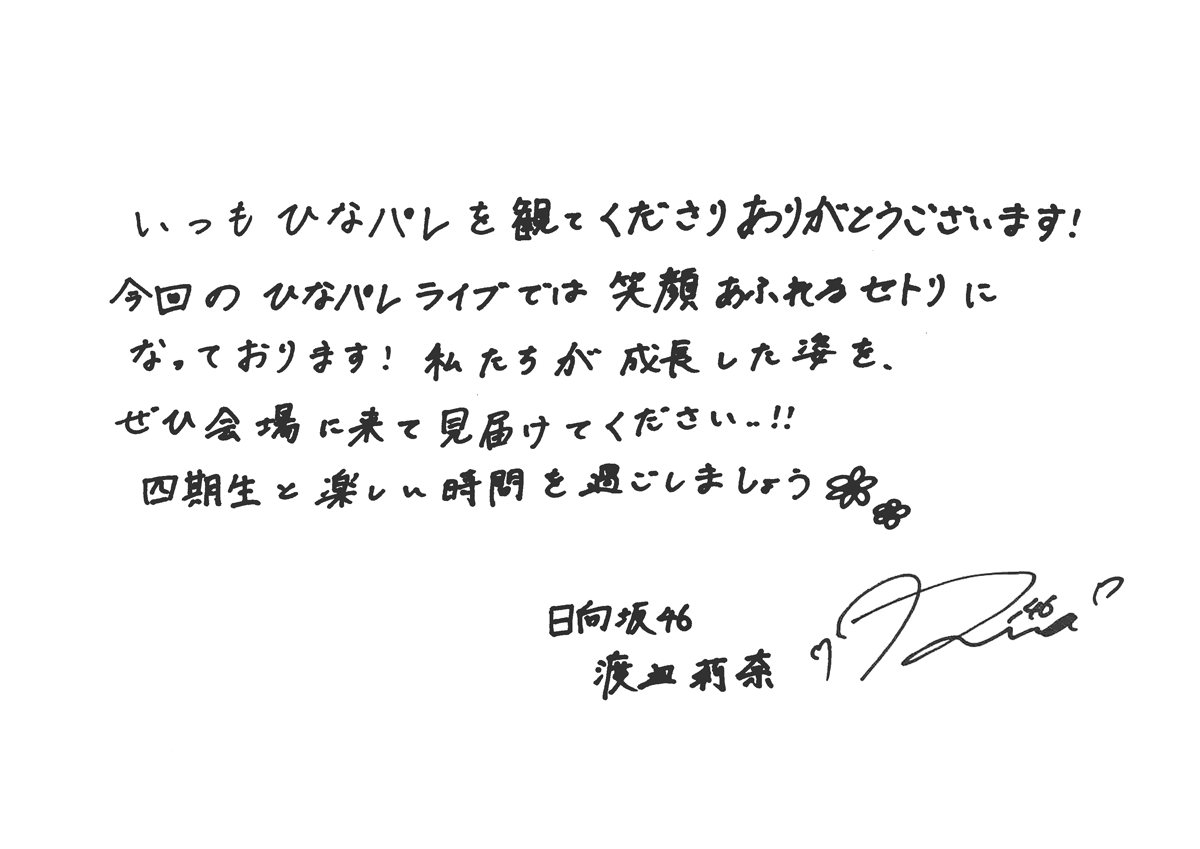 いつもひなパレを観てくださりありがとうございます!
今回のひなパレライブでは笑顔あふれるセトリに
なっております!私たちが成長した姿を、
ぜひ会場に来て見届けてください..!!
四期生と楽しい時間を過ごしましょう
日向坂46
渡辺莉奈
Rina 46